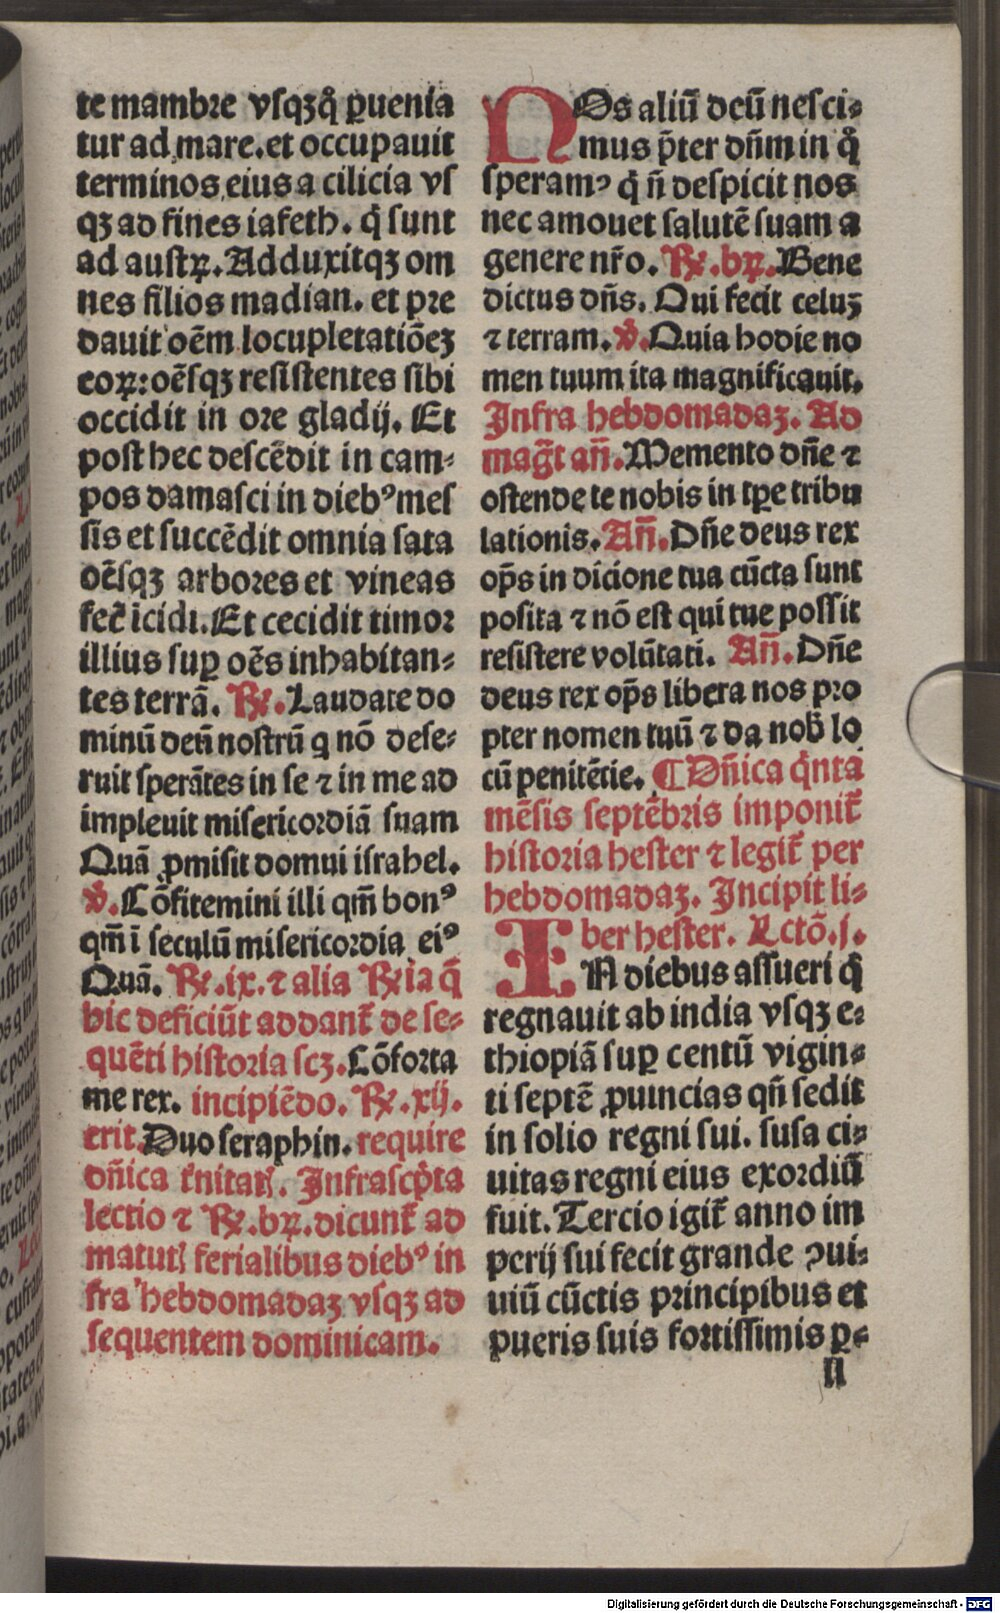 te mambre vſqꝫq̊ ꝑuenia
tur ad mare. et occupauit
terminos eius a cilicia vſ
qꝫ ad fines iafeth. q̇ ſunt
ad auſtrꝝ. Adduxitqꝫ om
nes filios madian. et pre
dauit oẽm locupletatiõeꝫ
eoꝝ: oẽſqꝫ reſiſtentes ſibi
occidit in ore gladij. Et
poſt hec deſcẽdit in cam⸗
pos damaſci in diebꝰ meſ
ſis et ſuccẽdit omnia ſata
oẽſqꝫ arbores et vineas
fec̃ ĩcidi. Et cecidit timor
illius ſuꝑ oẽs inhabitan⸗
tes terrã. ℞. Laudate do
minũ deũ noſtrũ q nõ deſe⸗
ruit ſperãtes in ſe ⁊ in me ad
impleuit miſericordiã ſuam
Quã ꝓmiſit domui iſrahel.
℣. Cõfitemini illi qm̃ bonꝰ
qm̃ ĩ ſeculũ miſericordia eiꝰ
Quã. ℞. ix. ⁊ alia ℞ia q̃
hic deficiũt addant̃ de ſe⸗
quẽti hiſtoria ſcꝫ. Cõforta
me rex. incipiẽdo. ℞. xij.
erit. Duo ſeraphin. require
dñica t̓nitaꝭ. Infraſcp̓ta
lectio ⁊ ℞. bꝝ. dicunt̃ ad
matutꝭ ferialibus diebꝰ in
fra hebdomadaꝫ vſqꝫ ad
ſequentem dominicam.
NOs aliũ deũ neſci⸗
mus p̃ter dñm in q̊
ſperamꝰ q̇ ñ deſpicit nos
nec amouet ſalutẽ ſuam a
genere nr̃o. ℞. bꝝ. Bene
dictus dñs. Qui fecit celuꝫ
⁊ terram. ℣. Quia hodie no
men tuum ita magnificauit.
Infra hebdomadaꝫ. Ad
mag̃t añ. Memento dñe ⁊
oſtende te nobis in tꝑe tribu
lationis. Añ. Dñe deus rex
op̃s in dicione tua cũcta ſunt
poſita ⁊ nõ eſt qui tue poſſit
reſiſtere volũtati. Añ. Dñe
deus rex op̃s libera nos pro
pter nomen tuũ ⁊ da nob̃ lo
cũ penitẽtie. ¶ Dñica q̇nta
mẽſis ſeptẽbris imponit̃
hiſtoria heſter ⁊ legit̃ per
hebdomadaꝫ. Incipit li⸗
ber heſter. Lctõ. j.
IN diebus aſſueri q̇
regnauit ab india vſqꝫ e⸗
thiopiã ſuꝑ centũ vigin⸗
ti ſeptẽ ꝓuincias qñ ſedit
in ſolio regni ſui. ſuſa ci⸗
uitas regni eius exordiũ
fuit. Tercio igit̃ anno im
perij ſui fecit grande ꝯui⸗
uiũ cũctis principibus et
pueris ſuis fortiſſimis ꝑ⸗
ll
Digitalisierung gefördert durch die Deutsche Forschungsgemeinschaft - DFG